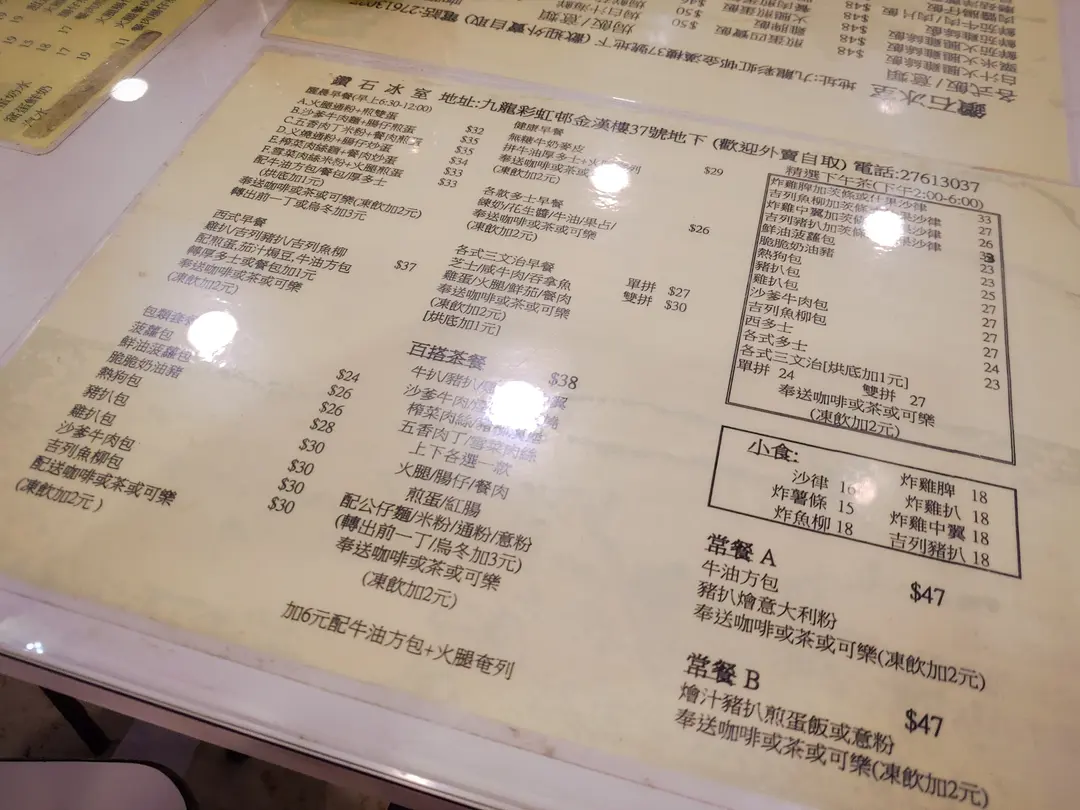 鑽石冰室 地址:九龍彩虹邨金漢樓37號地下 (歡迎外賣自取) 電話:27613037
龍晨早餐(早上6:30-12:00)
A.火腿通粉+煎雙蛋 $32
B.沙爹牛肉麵+腸仔煎蛋 $35
C.五香肉丁米粉+餐肉煎蛋 $35
D.叉燒通粉+腸仔炒蛋 $34
E.榨菜肉絲麵+餐肉炒蛋 $33
F.雪菜肉絲米粉+火腿煎蛋 $33
配牛油方包/餐包/厚多士
(烘底加1元)
奉送咖啡或茶或可樂(凍飲加2元)
轉出前一丁或烏冬加3元
西式早餐
雞扒/吉列豬扒/吉列魚柳
配煎蛋.茄汁焗豆.牛油方包 $37
轉厚多士或餐包加1元
奉送咖啡或茶或可樂
(凍飲加2元)
包類套餐
菠蘿包
鮮油菠蘿包 $24
脆脆奶油豬 $26
熱狗包 $26
豬扒包 $28
雞扒包 $30
沙爹牛肉包 $30
吉列魚柳包 $30
配送咖啡或茶或可樂 $30
(凍飲加2元)
健康早餐
無糖牛奶麥皮
拼牛油厚多士+火 列 $29
奉送咖啡或茶或
(凍飲加2元)
各款多士早餐
鍊奶/花生醬/牛油/果占/ $26
奉送咖啡或茶或可樂
(凍飲加2元)
各式三文治早餐
芝士/咸牛肉/吞拿魚 單拼 $27
雞蛋/火腿/鮮茄/餐肉 雙拼 $30
奉送咖啡或茶或可樂
(凍飲加2元)
[烘底加1元]
百搭茶餐 $38
牛扒/豬扒/ 翼
沙爹牛肉/
榨菜肉絲/
五香肉丁/雪菜肉絲
上下各選一款
火腿/腸仔/餐肉
煎蛋/紅腸
配公仔麵/米粉/通粉/意粉
(轉出前一丁/烏冬加3元)
奉送咖啡或茶或可樂
(凍飲加2元)
加6元配牛油方包+火腿奄列
精選下午茶(下午2:00-6:00)
炸雞脾加茨條或什果沙律 33
吉列魚柳加茨條 沙律 27
炸雞中翼加茨條 果沙律 26
吉列豬扒加茨條 果沙律
鮮油菠蘿包 23
脆脆奶油豬 23
熱狗包 25
豬扒包 27
雞扒包 27
沙爹牛肉包 27
吉列魚柳包 27
西多士 24
各式多士 23
各式三文治[烘底加1元]
單拼 24 雙拼 27
奉送咖啡或茶或可樂
(凍飲加2元)
小食:
沙律 16 炸雞脾 18
炸薯條 15 炸雞扒 18
炸魚柳 18 炸雞中翼 18
吉列豬扒 18
常餐 A $47
牛油方包
豬扒燴意大利粉
奉送咖啡或茶或可樂(凍飲加2元)
常餐 B $47
燴汁豬扒煎蛋飯或意粉
奉送咖啡或茶或可樂(凍飲加2元)